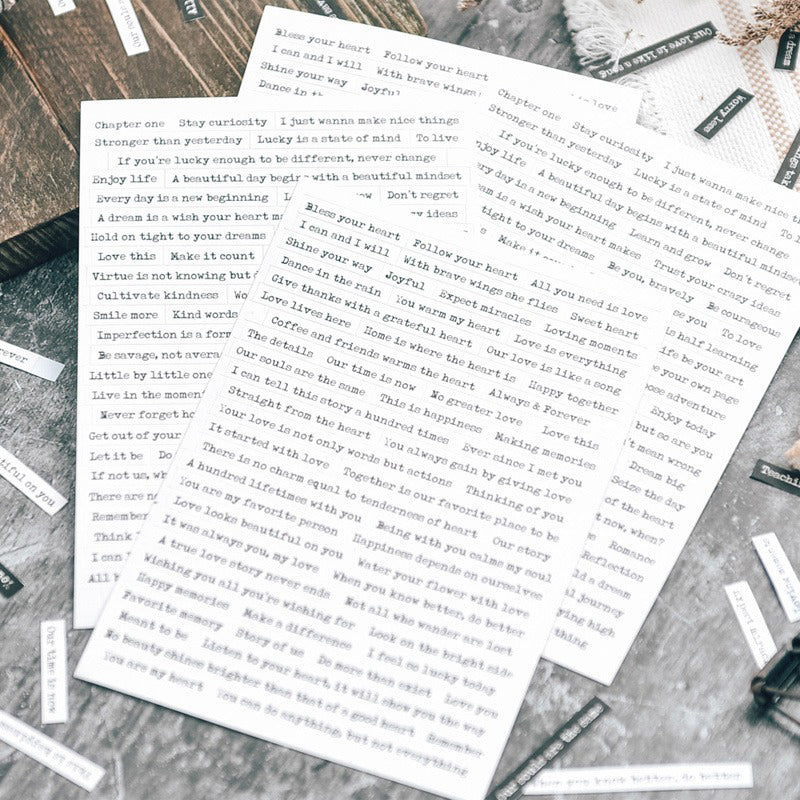 Bless your heart Follow your heart
I can and I will With brave wings
Shine your way Joyful
Dance in
Chapter one Stay curiosity I just wanna make nice things
Stronger than yesterday Lucky is a state of mind To live
If you're lucky enough to be different, never change
Enjoy life A beautiful day begins
Every day is a new beginning Don't regret
A dream is a wish your heart
Hold on tight to your dreams
Love this Make it count
Virtue is not knowing but
Cultivate kindness
Smile more Kind words
Imperfection is a form
Be savage, not
Little by little one
Live in the moment
Never forget
Get out of your
Let it be Do
If not us,
There are
Remember
Think
I can
All
Chapter one Stay curiosity I just wanna make nice
Stronger than yesterday Lucky is a state of mind To
If you're lucky enough to be different, never change
Enjoy life A beautiful day begins with a beautiful mindset
day is a new beginning Learn and grow Don't regret
is a wish your heart makes Trust your crazy ideas
tight to your dreams Be you, bravely Be courageous
Make it To love
is half learning
life be your art
your own page
adventure
Enjoy today
but so are you
mean wrong
Dream big
Seize the day
of the heart
now, when?
Romance
Reflection
a dream
journey
high
thing
Bless your heart Follow your heart All you need is love
I can and I will With brave wings she flies Sweet heart
Shine your way Joyful Expect miracles Loving moments
Dance in the rain You warm my heart Love is everything
Give thanks with a grateful heart Our love is like a song
Love lives here Home is where the heart is Happy together
Coffee and friends warms the heart Always & Forever
The details Our time is now No greater love Love this
Our souls are the same This is happiness Making memories
I can tell this story a hundred times Ever since I met you
Straight from the heart You always gain by giving love
Your love is not only words but actions Thinking of you
It started with love Together is our favorite place to be
There is no charm equal to tenderness of heart Our story
A hundred lifetimes with you Being with you calms my soul
You are my favorite person Happiness depends on ourselves
Love looks beautiful on you Water your flower with love
It was always you, my love When you know better, do better
A true love story never ends Not all who wander are lost
Wishing you all you're wishing for Look on the bright side
Happy memories Make a difference I feel so lucky today
Favorite memory Story of us Do more than exist Love you
Meant to be Listen to your heart, it will show you the way
No beauty shines brighter than that of a good heart Remember
You are my heart You can do anything, but not everything
Our love is like a song
Worry less
Our time is now